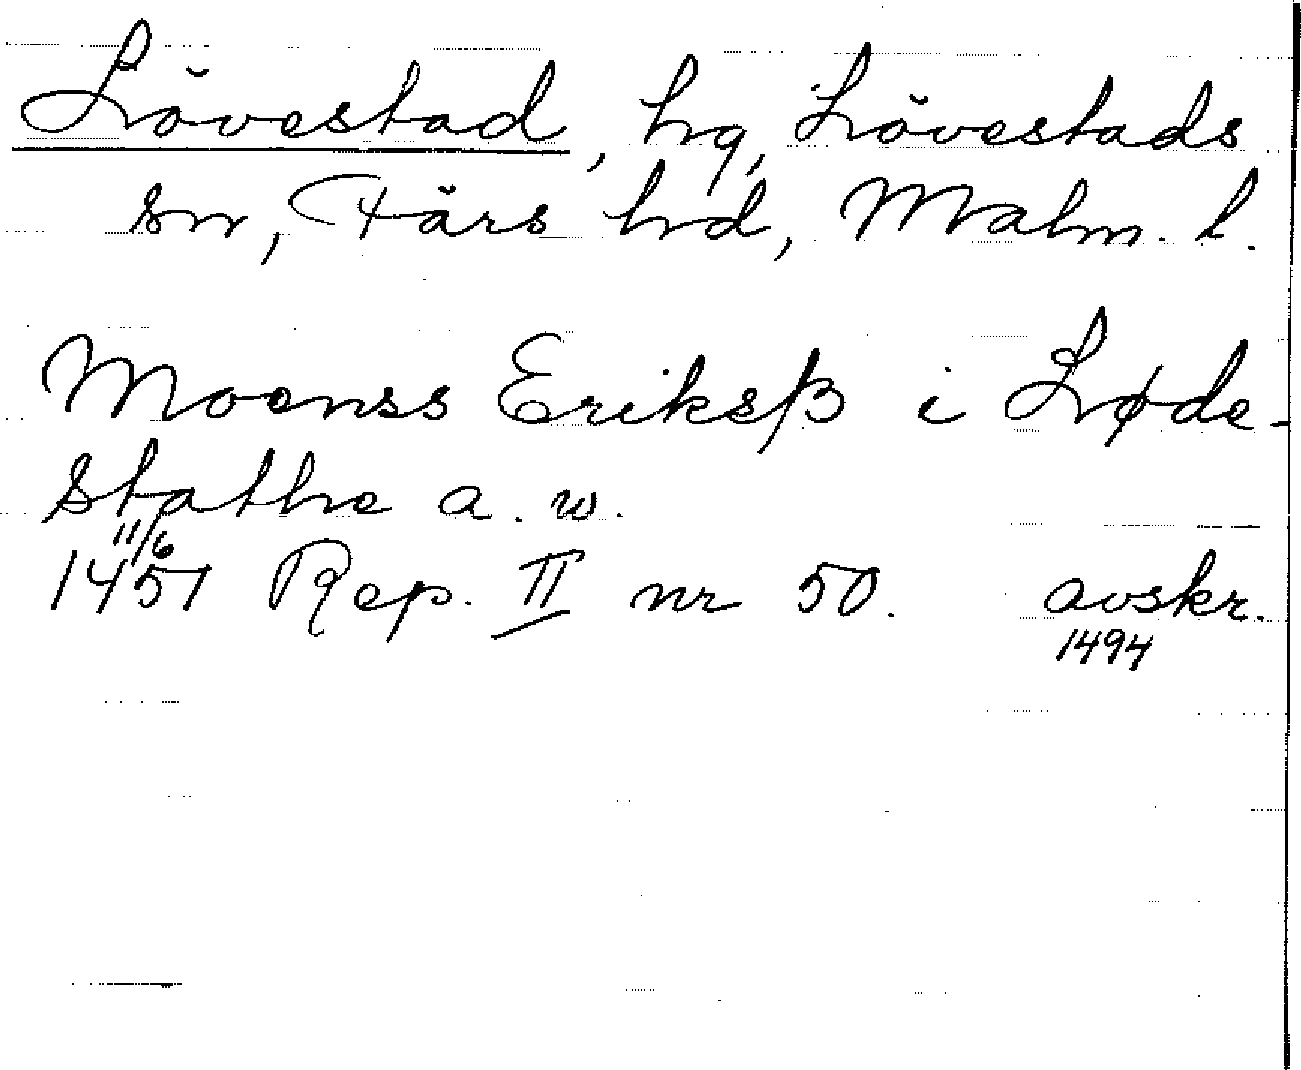 Lövestad, hg, Lövestads
sn, Färs hd, Malm. l.
Moenss Eriksß i Løde-
stathe a. w.
11/6
1451 Rep. II nr 50. avskr.
1494